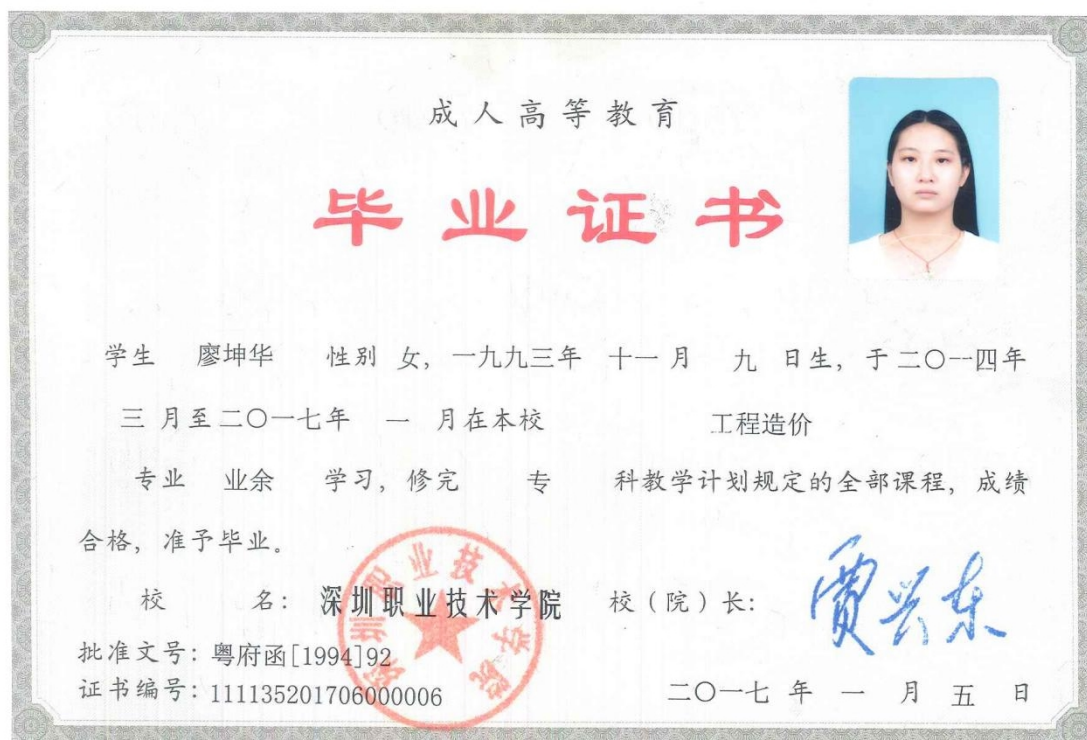 成人高等教育
毕业证书
学生 廖坤华 性别 女，一九九三年 十一 月 九 日生，于二〇一四年
三 月至二〇一七年 一 月在本校 工程造价
专业 业余 学习，修完 专 科教学计划规定的全部课程，成绩
合格，准予毕业。
校 名：深圳职业技术学院 校（院）长：贾兴东
批准文号：粤府函[1994]92
证书编号：111135201706000006 二〇一七 年 一 月 五 日
深圳职业技术学院